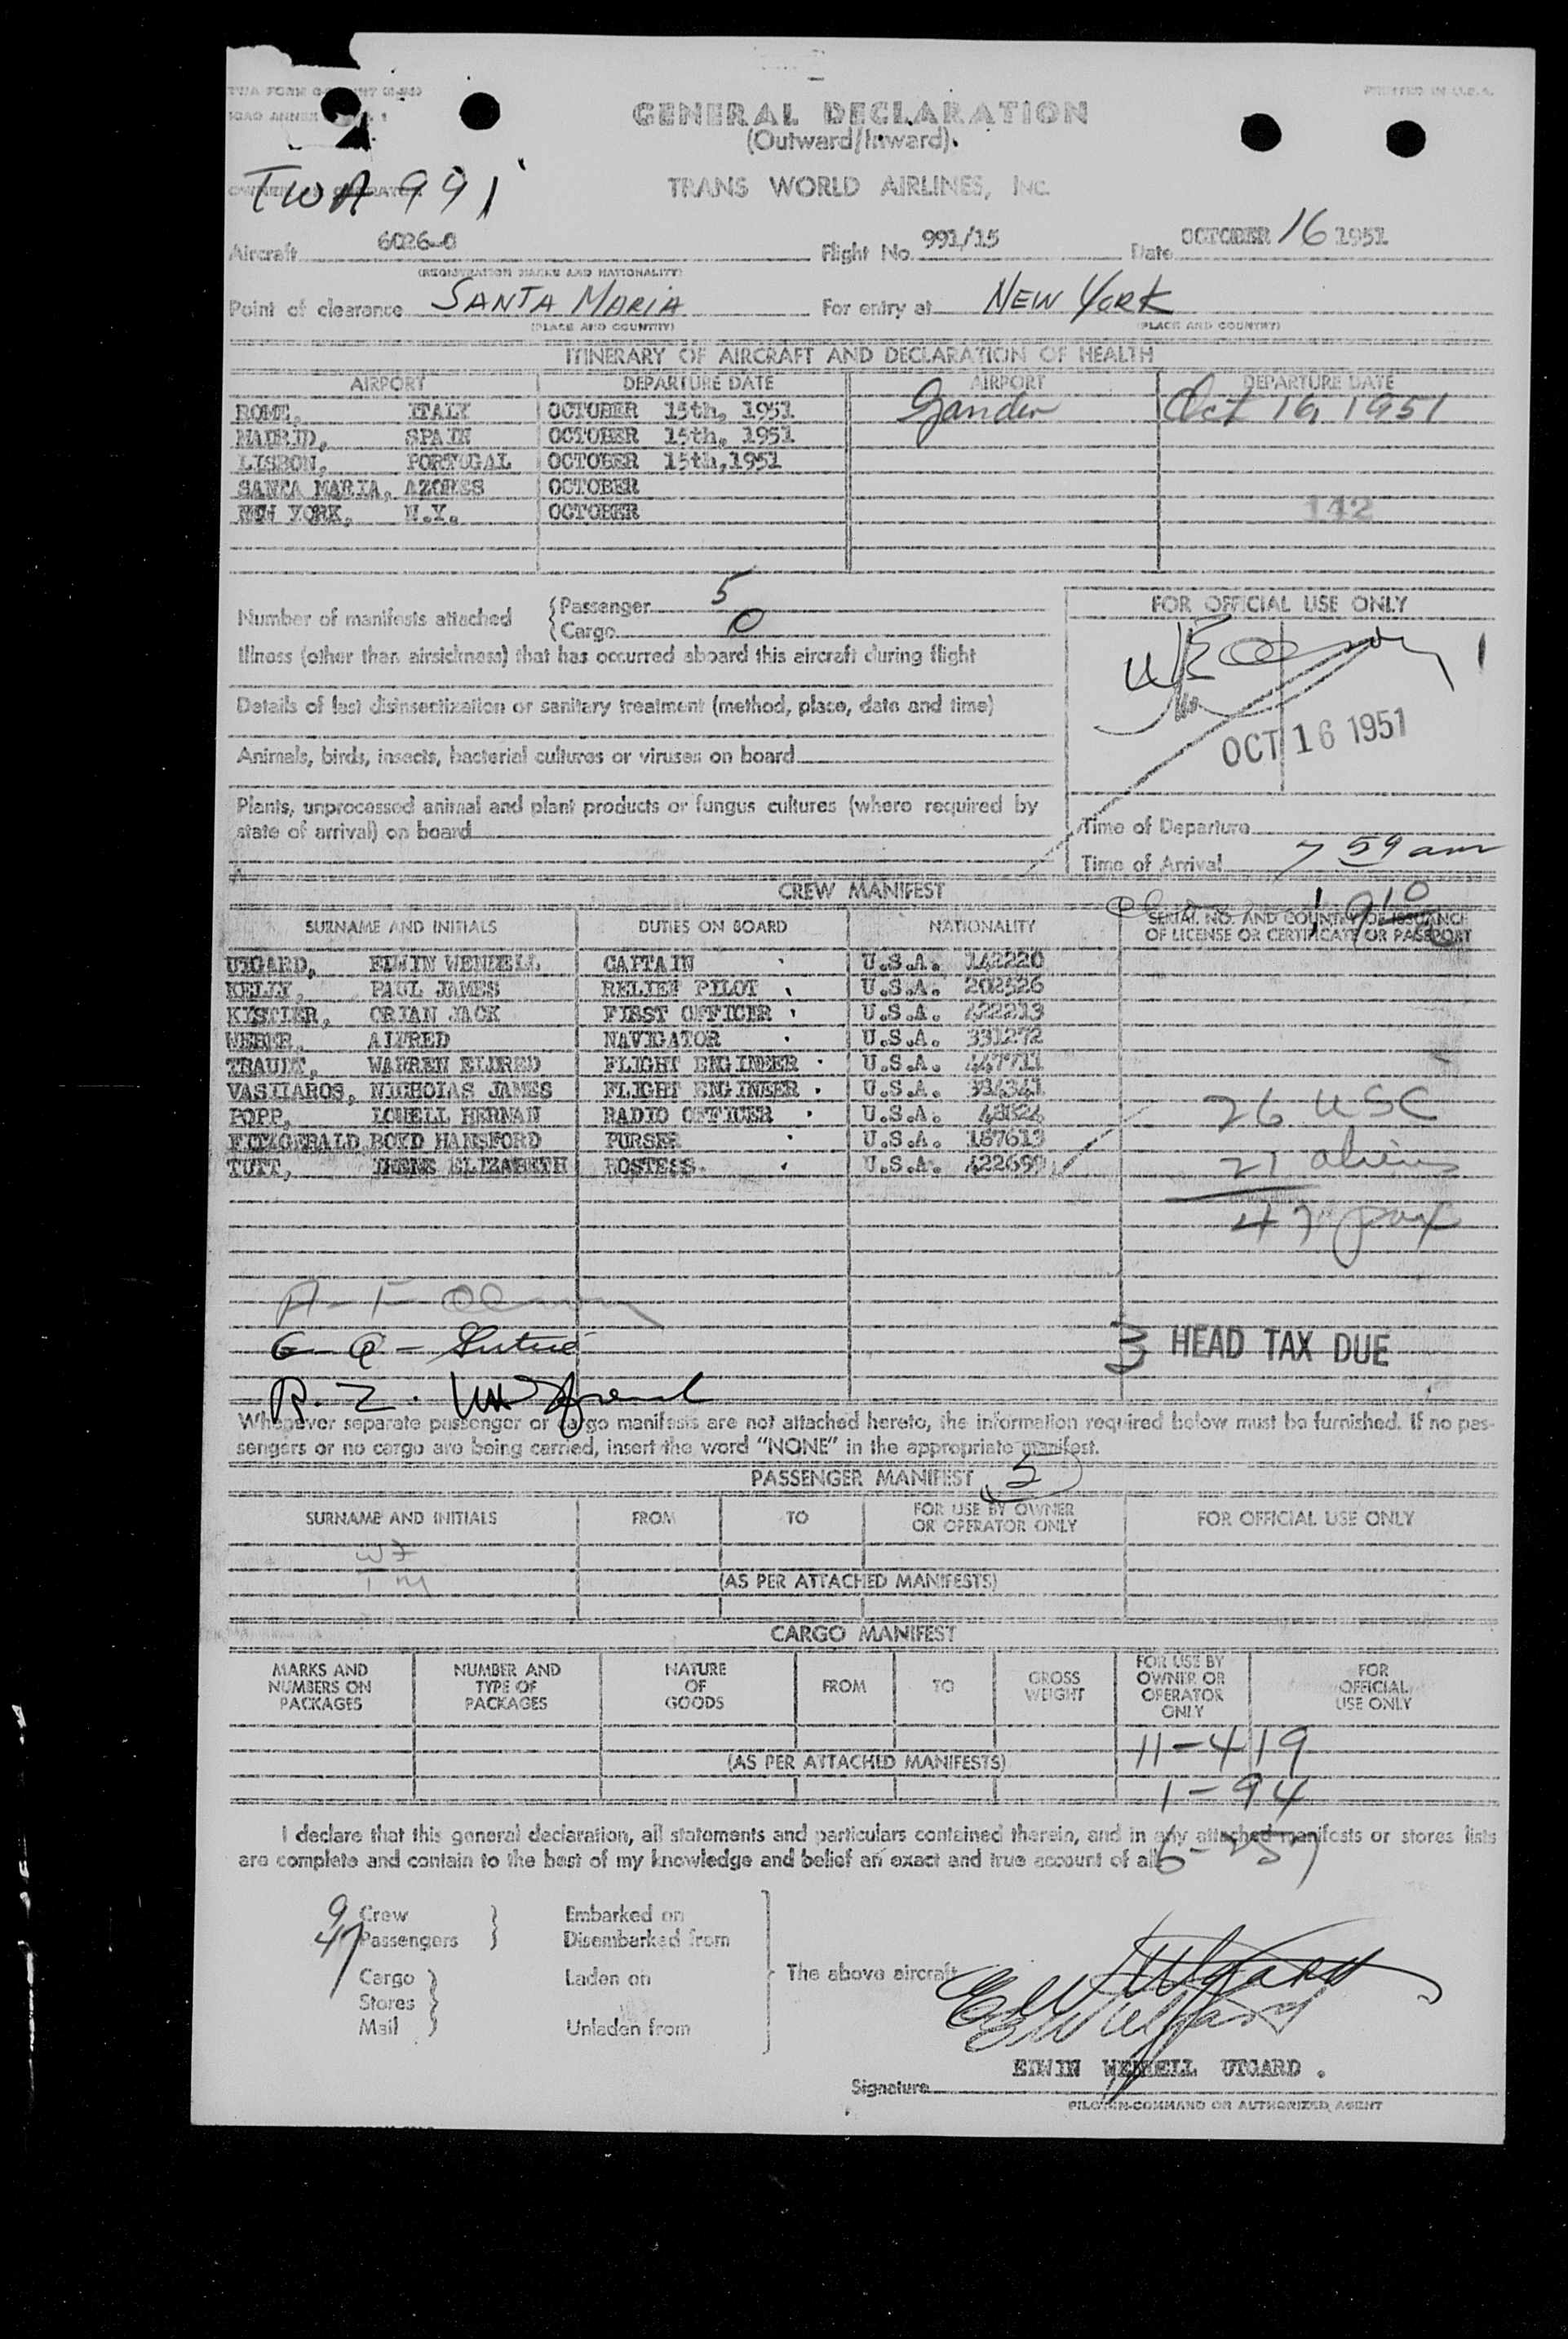 GENERAL DECLARATION
(Outward/Inward)
PRINTED IN U.S.A.
TRANS WORLD AIRLINES, INC.
TWA 991
Aircraft 6026-C
(REGISTRATION MARKS AND NATIONALITY)
Flight No. 991/15
Date OCTOBER 16 1951
Point of clearance SANTA MARIA
(PLACE AND COUNTRY)
For entry at NEW YORK
(PLACE AND COUNTRY)
ITINERARY OF AIRCRAFT AND DECLARATION OF HEALTH
AIRPORT DEPARTURE DATE AIRPORT DEPARTURE DATE
ROME, ITALY OCTOBER 15th, 1951 Gander Oct 16, 1951
MADRID, SPAIN OCTOBER 15th, 1951
LISBON, PORTUGAL OCTOBER 15th,1951
SANTA MARIA, AZORES OCTOBER
NEW YORK, N.Y. OCTOBER
142
Number of manifests attached
Passenger 5
Cargo 0
Illness (other than airsickness) that has occurred aboard this aircraft during flight
Details of last disinsectization or sanitary treatment (method, place, date and time)
Animals, birds, insects, bacterial cultures or viruses on board
Plants, unprocessed animal and plant products or fungus cultures (where required by
state of arrival) on board
FOR OFFICIAL USE ONLY
OCT 16 1951
Time of Departure
Time of Arrival 7 59 am
CREW MANIFEST
SURNAME AND INITIALS DUTIES ON BOARD NATIONALITY SERIAL NO. AND COUNTRY OF ISSUANCE
OF LICENSE OR CERTIFICATE OR PASSPORT
UTGARD, EDWIN WENDELL CAPTAIN U.S.A. 142220
KELLY, PAUL JAMES RELIEF PILOT U.S.A. 202526
KISTLER, ORIAN JACK FIRST OFFICER U.S.A. 422213
WEBER, ALFRED NAVIGATOR U.S.A. 331272
TRAULT, WARREN ELDRED FLIGHT ENGINEER U.S.A. 447711
VASILAROS, NICHOLAS JAMES FLIGHT ENGINEER U.S.A. 314341
POPP, LOWELL HERMAN RADIO OFFICER U.S.A.
FITZGERALD, BOYD HANSFORD PURSER U.S.A. 187613
TUTT, IRENE ELIZABETH HOSTESS U.S.A. 422699
26 USC
21 aliens
47 pax
HEAD TAX DUE
Whenever separate passenger or cargo manifests are not attached hereto, the information required below must be furnished. If no pas-
sengers or no cargo are being carried, insert the word "NONE" in the appropriate manifest.
PASSENGER MANIFEST 5
SURNAME AND INITIALS FROM TO FOR USE BY OWNER
OR OPERATOR ONLY FOR OFFICIAL USE ONLY
(AS PER ATTACHED MANIFESTS)
CARGO MANIFEST
MARKS AND
NUMBERS ON
PACKAGES
NUMBER AND
TYPE OF
PACKAGES
NATURE
OF
GOODS
FROM
TO
GROSS
WEIGHT
FOR USE BY
OWNER OR
OPERATOR
ONLY
FOR
OFFICIAL
USE ONLY
11-419
(AS PER ATTACHED MANIFESTS)
1-94
I declare that this general declaration, all statements and particulars contained therein, and in any attached manifests or stores lists
are complete and contain to the best of my knowledge and belief an exact and true account of all
9 Crew
47 Passengers
Embarked on
Disembarked from
Cargo
Stores
Mail
Laden on
Unladen from
The above aircraft
EDWIN WENDELL UTGARD.
Signature
PILOT-IN-COMMAND OR AUTHORIZED AGENT